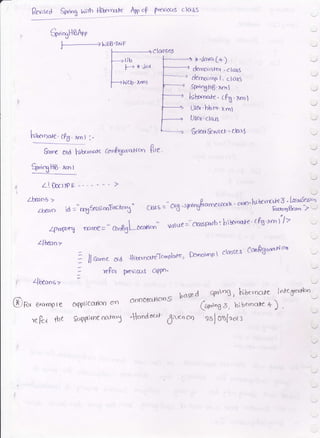 Revised Spring with Hibernate App of previous class
SpringHBApp
WEB-INF
classes
lib
*.jar
web.xml
*.java (4)
demointer.class
demoimpl.class
springHB.xml
hibernate.cfg.xml
user.hbm.xml
User.class
SelectService.class
hibernate.cfg.xml :-
Same old hibernate configuration file.
SpringHB.xml
<!DOCTYPE ------ >
<beans>
<bean id="mySessionFactory" class="org.springframework.orm.hibernate3.LocalSession
FactoryBean">
<property name="configLocation" value="classpath:hibernate.cfg.xml"/>
</bean>
// Same old HibernateTemplate, DemoImpl classes configuration
refer previous appn.
</beans>
For example application on annotations based spring, hibernate integration
(spring 3, hibernate 4)
refer the supplimentary Handout given on